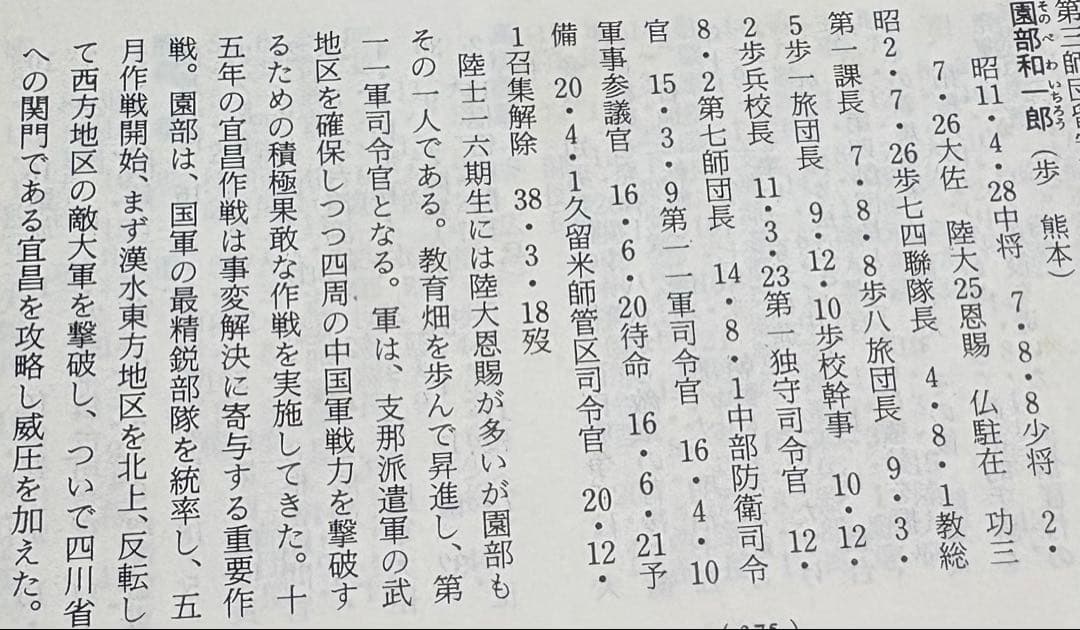 第三師団
園部和一郎（歩　熊本）
そのべわいちろう
昭11・4・28中将　7・8・8少将　2・
7・26大佐　陸大25恩賜　仏駐在　功三
昭2・7・26歩七四聯隊長　4・8・1教総
第一課長　7・8・8歩八旅団長　9・3・
5歩一旅団長　9・12・10歩校幹事　10・12・
2歩兵校長　11・3・23第一独守司令官　12・
8・2第七師団長　14・8・1中部防衛司令
官　15・3・9第一一軍司令官　16・4・10
軍事参議官　16・6・20待命　16・6・21予
備　20・4・1久留米師管区司令官　20・12・
1召集解除　38・3・18歿
陸士一六期生には陸大恩賜が多いが園部も
その一人である。教育畑を歩んで昇進し、第
一一軍司令官となる。軍は、支那派遣軍の武
地区を確保しつつ四周の中国軍戦力を撃破す
るための積極果敢な作戦を実施してきた。十
五年の宜昌作戦は事変解決に寄与する重要作
戦。園部は、国軍の最精鋭部隊を統率し、五
月作戦開始、まず漢水東方地区を北上、反転し
て西方地区の敵大軍を撃破し、ついで四川省
への関門である宜昌を攻略し威圧を加えた。